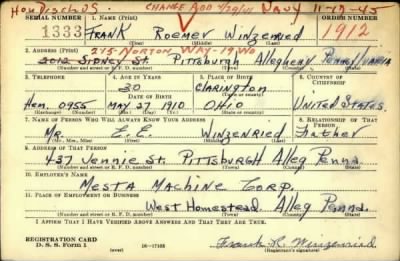 Hon Disch OS. CHANGE ADD 1/29/41 Navy 11-19-45
SERIAL NUMBER 1. NAME (Print) ORDER NUMBER
1333 FRANK ROEMER WINZENRIED 1912
(First) (Middle) (Last)
2. ADDRESS (Print) 275 NORTON WAY-19 WD
2012 SIDNEY ST. Pittsburgh Allegheny PENNSYLVANIA
(Number and street or R. F. D. number) (Town) (County) (State)
3. TELEPHONE 4. AGE IN YEARS 5. PLACE OF BIRTH 6. COUNTRY OF CITIZENSHIP
30 CLARINGTON
DATE OF BIRTH (Town or county)
Hem. 0955 MAY 27 1910 OHIO United States
(Exchange) (Number) (Mo.) (Day) (Yr.) (State or country)
7. NAME OF PERSON WHO WILL ALWAYS KNOW YOUR ADDRESS 8. RELATIONSHIP OF THAT PERSON
Mr. E. E. WINZENRIED Father
(Mr., Mrs., Miss) (First) (Middle) (Last)
9. ADDRESS OF THAT PERSON
437 Jennie St. PITTSBURGH Alleg Penna.
(Number and street or R. F. D. number) (Town) (County) (State)
10. EMPLOYER'S NAME
MESTA MACHINE CORP.
11. PLACE OF EMPLOYMENT OR BUSINESS
West Homestead Alleg Penna.
(Number and street or R. F. D. number) (Town) (County) (State)
I AFFIRM THAT I HAVE VERIFIED ABOVE ANSWERS AND THAT THEY ARE TRUE.
REGISTRATION CARD
D. S. S. Form 1 (over) 16-17105 Frank R. Winzenried
(Registrant's signature)